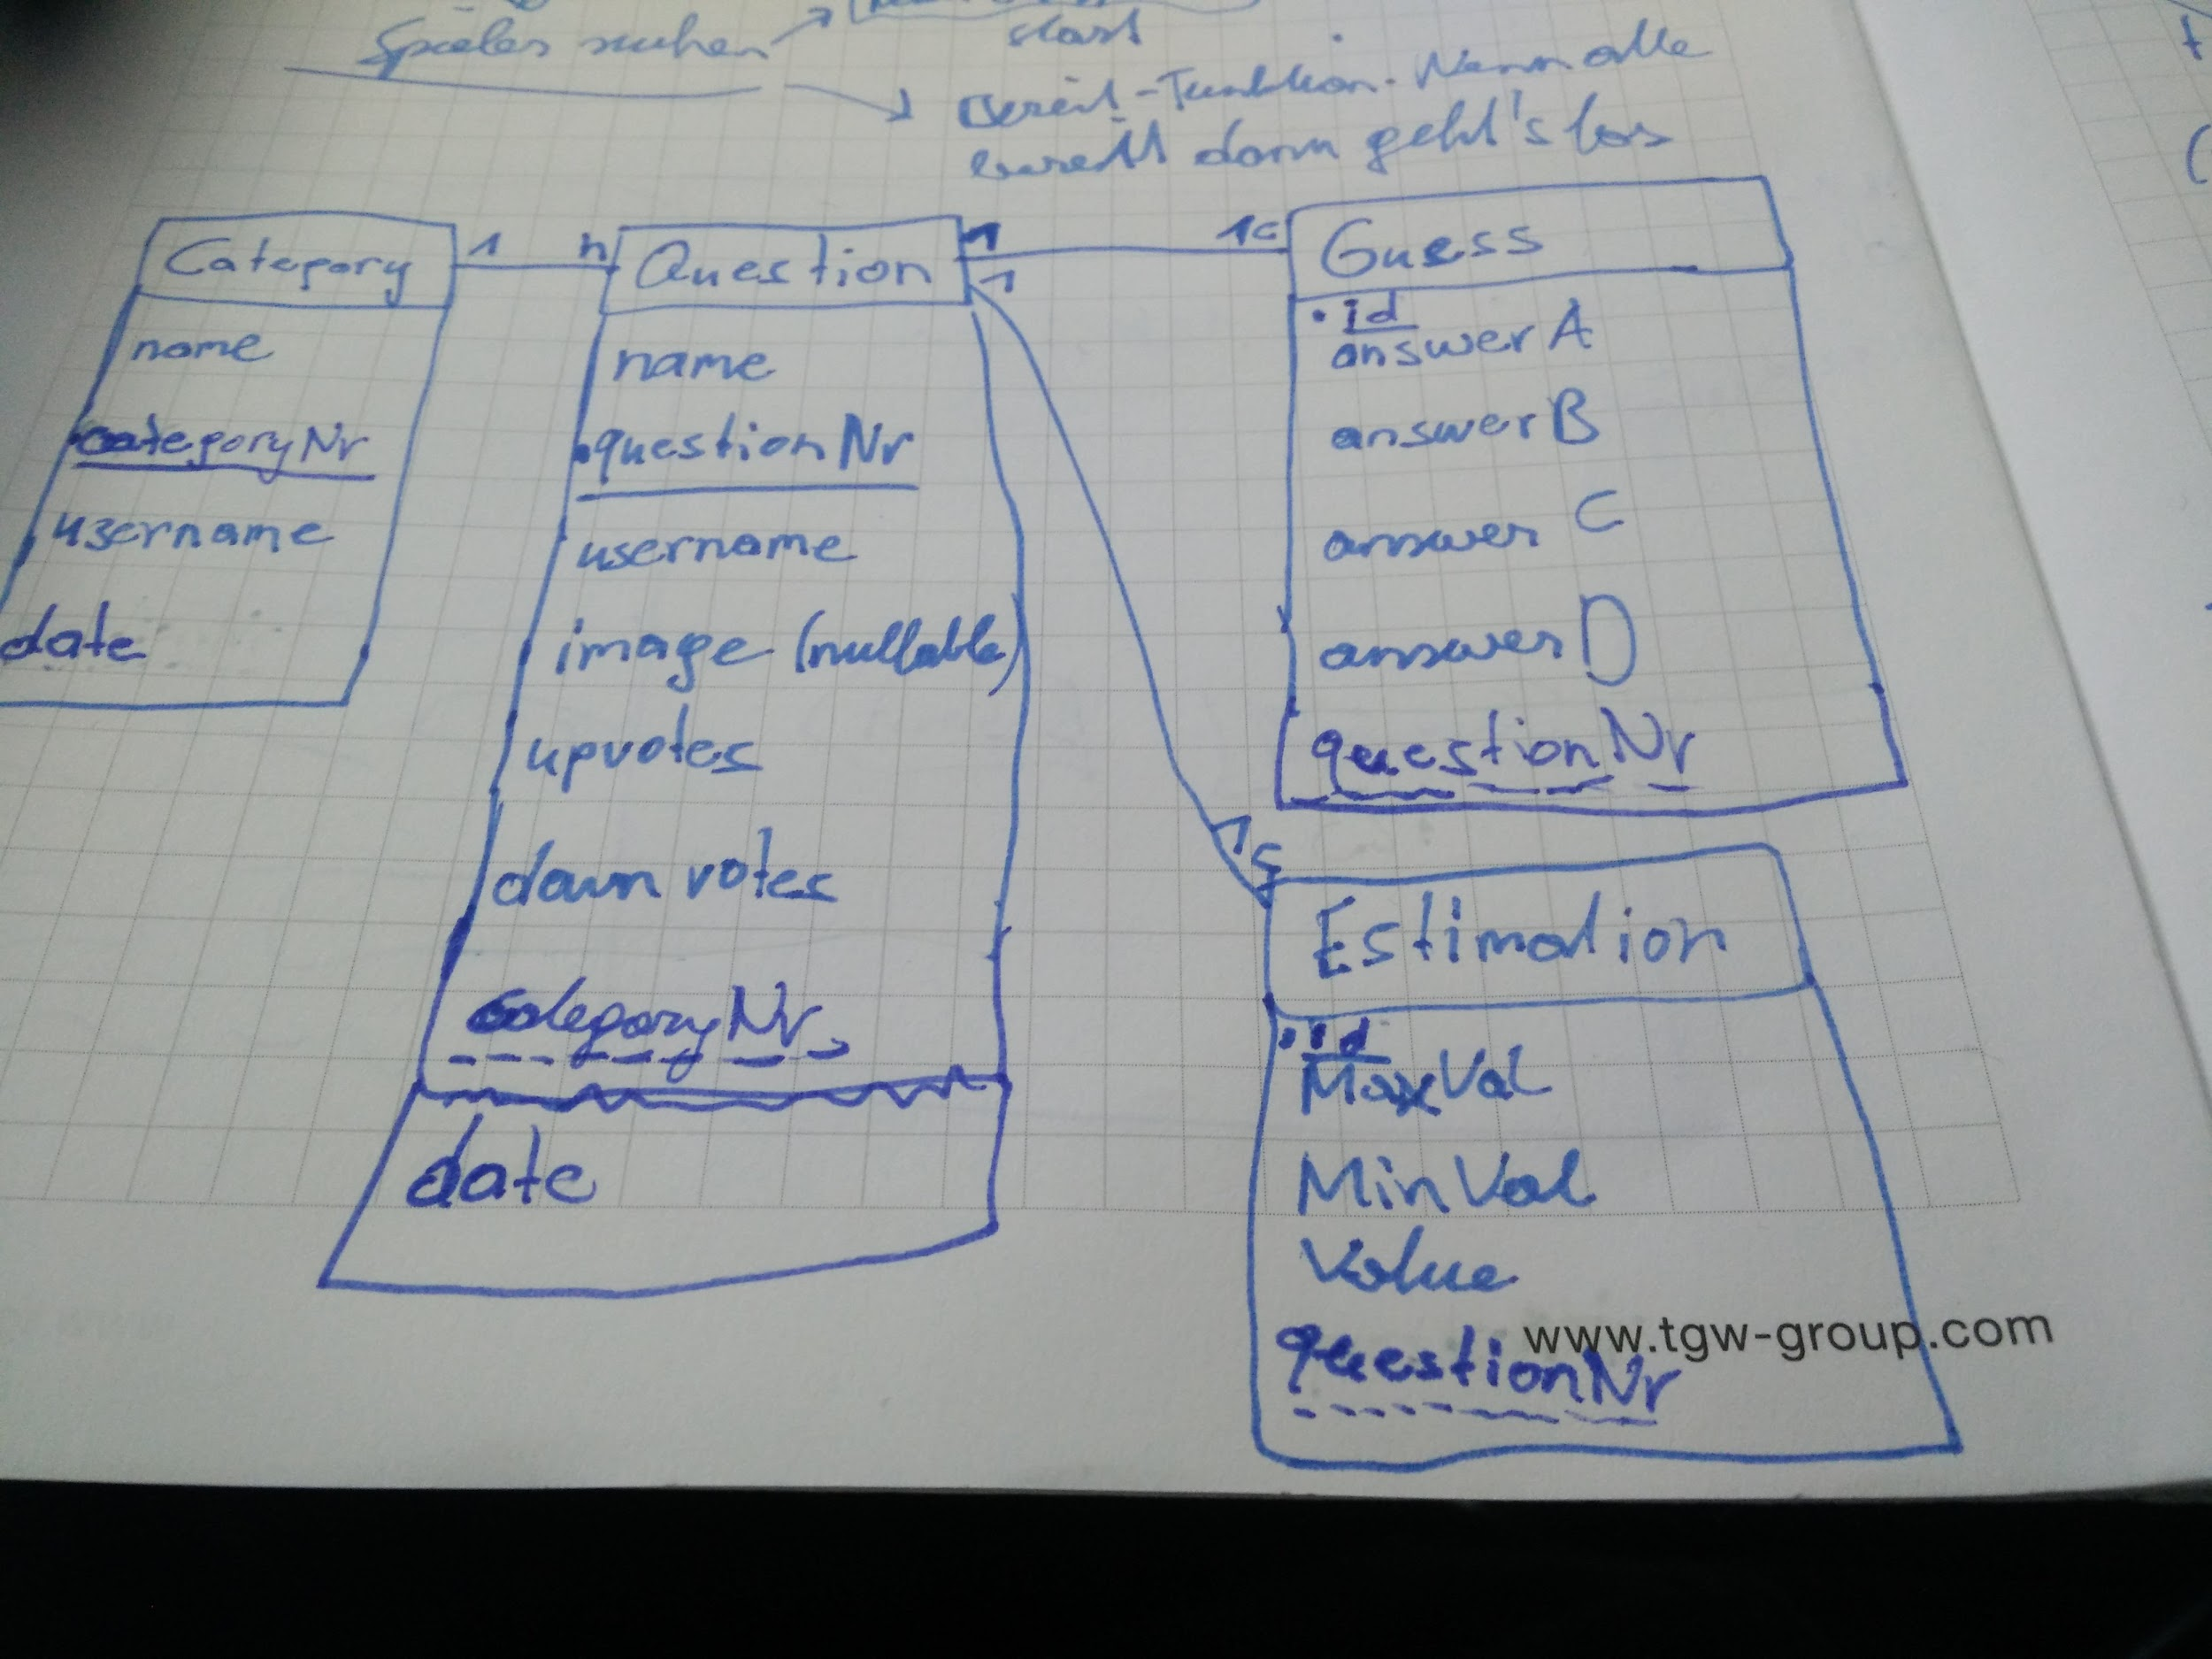 Spieler suchen
start
Bereit-Funktion. Wenn alle
bereit dann geht's los
Category
1 n
Question
1 1c
1
Guess
name
categoryNr
username
date
name
questionNr
username
image (nullable)
upvotes
down votes
categoryNr
date
id
answer A
answer B
answer C
answer D
questionNr
1c
Estimation
id
MaxVal
MinVal
Value
questionNr
www.tgw-group.com